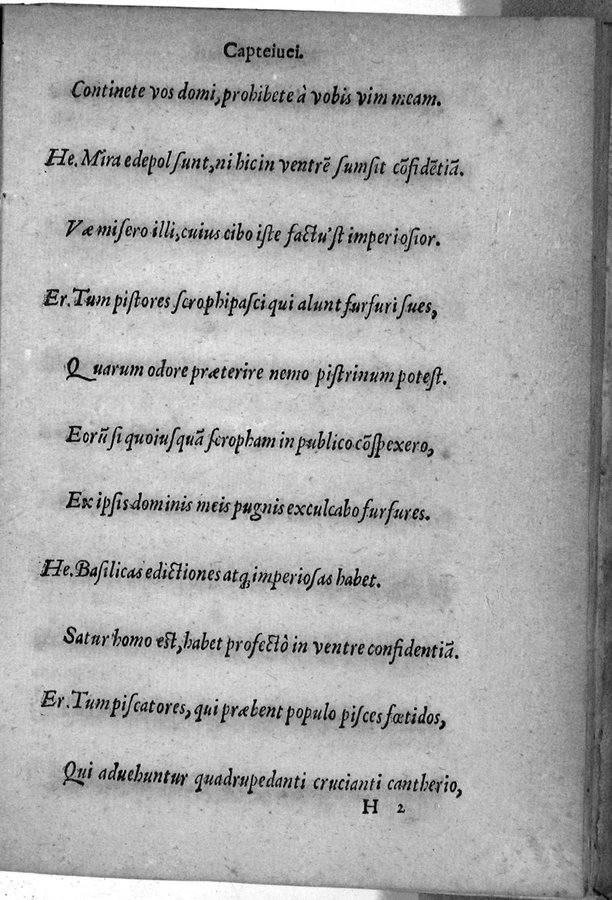 Capteiuei.
Continete vos domi, prohibete à vobis vim meam.
He. Mira edepol sunt, ni hic in ventrē sumsit cōfidētiā.
Væ misero illi, cuius cibo iste factu'st imperiosior.
Er. Tum pistores scrophipasci qui alunt furfuri sues,
Quarum odore præterire nemo pistrinum potest.
Eorū si quoiusquā scropham in publico cōspexero,
Ex ipsis dominis meis pugnis exculcabo furfures.
He. Basilicas edictiones atq; imperiosas habet.
Satur homo est, habet profectò in ventre confidentiā.
Er. Tum piscatores, qui præbent populo pisces fœtidos,
Qui aduehuntur quadrupedanti crucianti cantherio,
H 2